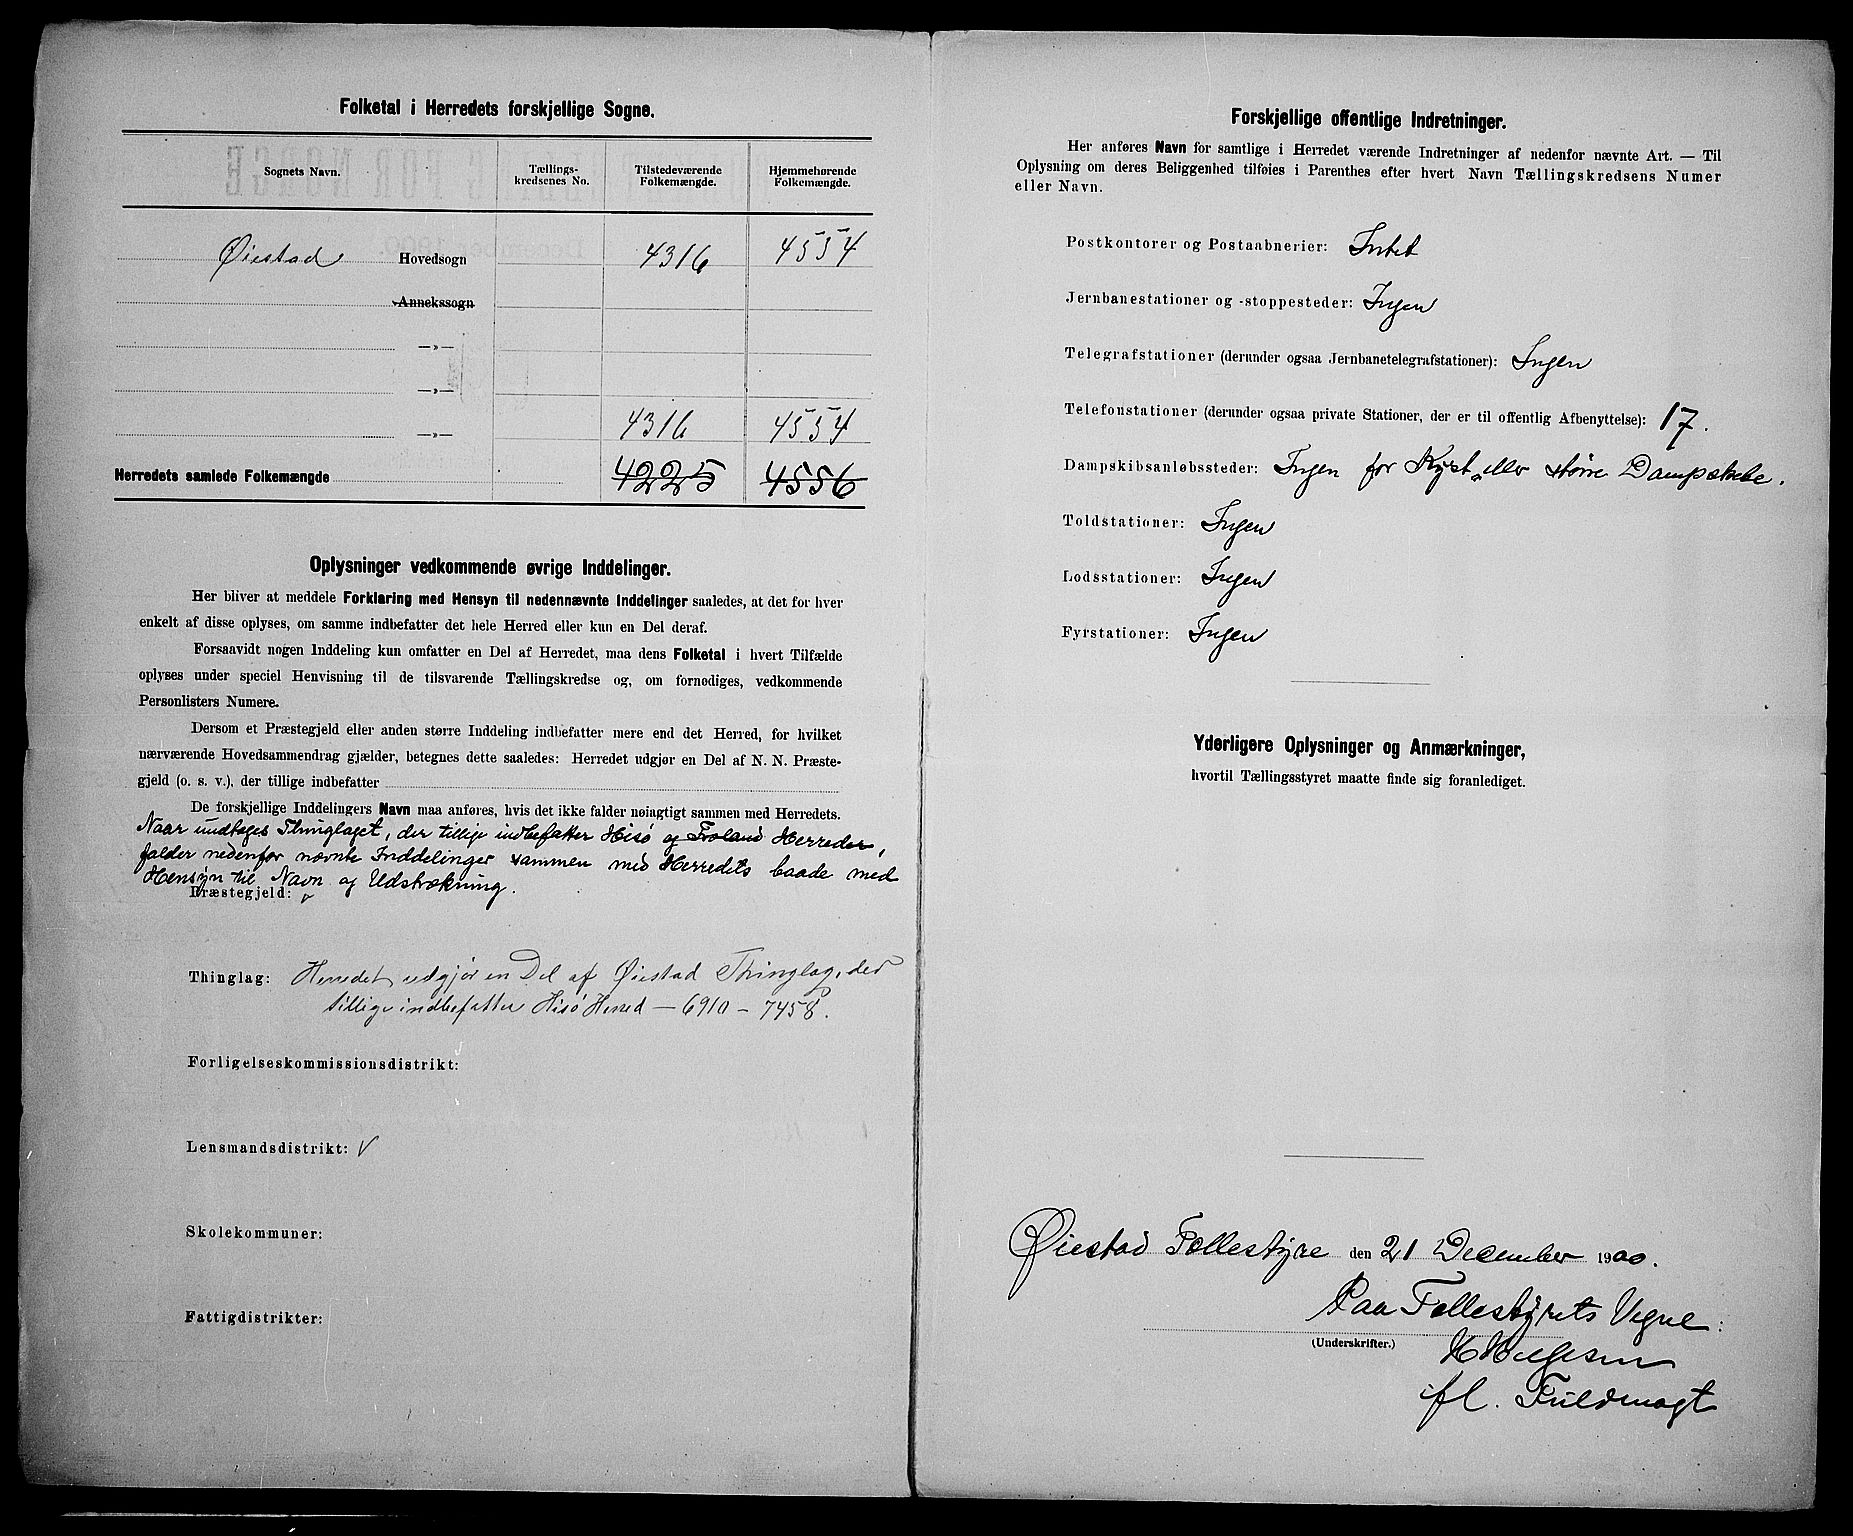 Folketal i Herredets forskjellige Sogne.
Sognets Navn. Tællings-kredsenes No. Tilstedeværende Folkemængde. Hjemmehørende Folkemængde.
Øiestad Hovedsogn 4316 4554
Annekssogn
—»—
—»—
—»— 4316 4554
Herredets samlede Folkemængde 4225 4556
Oplysninger vedkommende øvrige Inddelinger.
Her bliver at meddele Forklaring med Hensyn til nedennævnte Inddelinger saaledes, at det for hver
enkelt af disse oplyses, om samme indbefatter det hele Herred eller kun en Del deraf.
Forsaavidt nogen Inddeling kun omfatter en Del af Herredet, maa dens Folketal i hvert Tilfælde
oplyses under speciel Henvisning til de tilsvarende Tællingskredse og, om fornødiges, vedkommende
Personlisters Numere.
Dersom et Præstegjeld eller anden større Inddeling indbefatter mere end det Herred, for hvilket
nærværende Hovedsammendrag gjælder, betegnes dette saaledes: Herredet udgjør en Del af N. N. Præste-
gjeld (o. s. v.), der tillige indbefatter
De forskjellige Inddelingers Navn maa anføres, hvis det ikke falder nøiagtigt sammen med Herredets.
Naar undtages Thinglaget, der tillige indbefatter Hisø og Froland Herreder,
falder nedenfor nævnte Inddelinger sammen med Herredets baade med
Hensyn til Navn og Udstrækning.
Præstegjeld:
Thinglag: Herredet udgjør en Del af Øiestad Thinglag, der
tillige indbefatter Hisø Herred — 6910 — 7458.
Forligelseskommissionsdistrikt:
Lensmandsdistrikt: V
Skolekommuner:
Fattigdistrikter:
Forskjellige offentlige Indretninger.
Her anføres Navn for samtlige i Herredet værende Indretninger af nedenfor nævnte Art. — Til
Oplysning om deres Beliggenhed tilføies i Parenthes efter hvert Navn Tællingskredsens Numer
eller Navn.
Postkontorer og Postaabnerier: Intet
Jernbanestationer og -stoppesteder: Ingen
Telegrafstationer (derunder ogsaa Jernbanetelegrafstationer): Ingen
Telefonstationer (derunder ogsaa private Stationer, der er til offentlig Afbenyttelse): 17.
Dampskibsanløbssteder: Ingen for Kyst- eller større Dampskibe.
Toldstationer: Ingen
Lodsstationer: Ingen
Fyrstationer: Ingen
Yderligere Oplysninger og Anmærkninger,
hvortil Tællingsstyret maatte finde sig foranlediget.
Øiestad Tællestyre den 21 December 1900.
Paa Tællestyrets Vegne:
(Underskrifter.)
fl. Fuldmagt